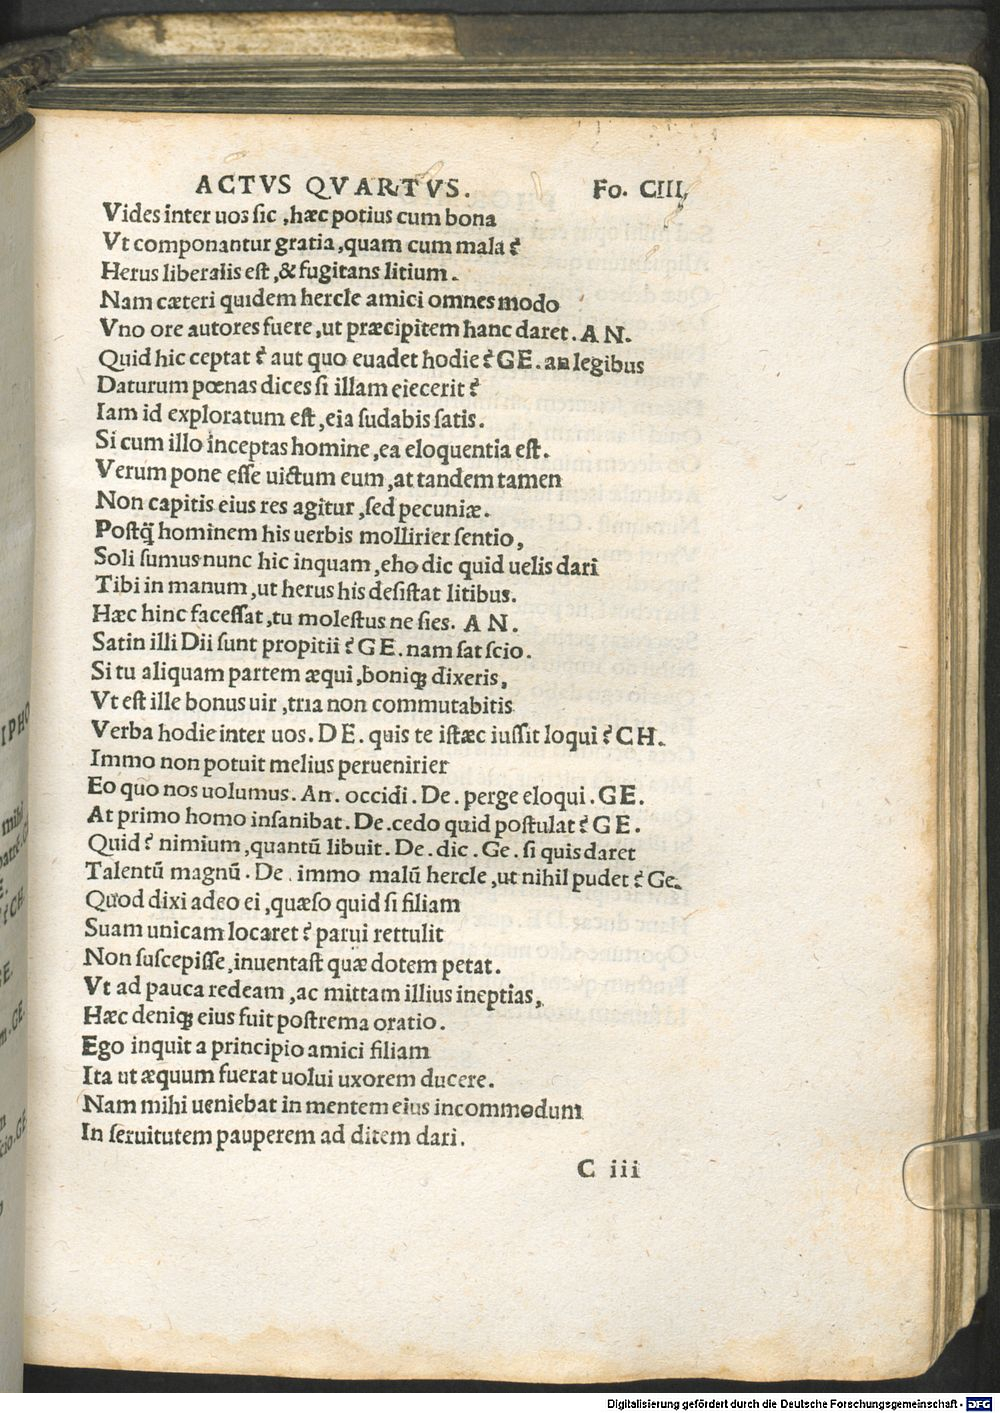 ACTVS QVARTVS. Fo. CIII,
Vides inter uos sic, hæc potius cum bona
Vt componantur gratia, quam cum mala?
Herus liberalis est, & fugitans litium.
Nam cæteri quidem hercle amici omnes modo
Vno ore autores fuere, ut præcipitem hanc daret. AN.
Quid hic ceptat? aut quo euadet hodie? GE. an legibus
Daturum pœnas dices si illam eiecerit?
Iam id exploratum est, eia sudabis satis.
Si cum illo inceptas homine, ea eloquentia est.
Verum pone esse uictum eum, at tandem tamen
Non capitis eius res agitur, sed pecuniæ.
Postq̃ hominem his uerbis mollirier sentio,
Soli sumus nunc hic inquam, eho dic quid uelis dari
Tibi in manum, ut herus his desistat litibus.
Hæc hinc facessat, tu molestus ne sies. AN.
Satin illi Dii sunt propitii? GE. nam sat scio.
Si tu aliquam partem æqui, boniq; dixeris,
Vt est ille bonus uir, tria non commutabitis
Verba hodie inter uos. DE. quis te istæc iussit loqui? CH.
Immo non potuit melius peruenirier
Eo quo nos uolumus. An. occidi. De. perge eloqui. GE.
At primo homo insanibat. De. cedo quid postulat? GE.
Quid? nimium, quantũ libuit. De. dic. Ge. si quis daret
Talentũ magnũ. De. immo malũ hercle, ut nihil pudet? Ge.
Quod dixi adeo ei, quæso quid si filiam
Suam unicam locaret? parui rettulit
Non suscepisse, inuentast quæ dotem petat.
Vt ad pauca redeam, ac mittam illius ineptias,
Hæc deniq; eius fuit postrema oratio.
Ego inquit a principio amici filiam
Ita ut æquum fuerat uolui uxorem ducere.
Nam mihi ueniebat in mentem eius incommodum
In seruitutem pauperem ad ditem dari.
C iii
Digitalisierung gefördert durch die Deutsche Forschungsgemeinschaft - DFG